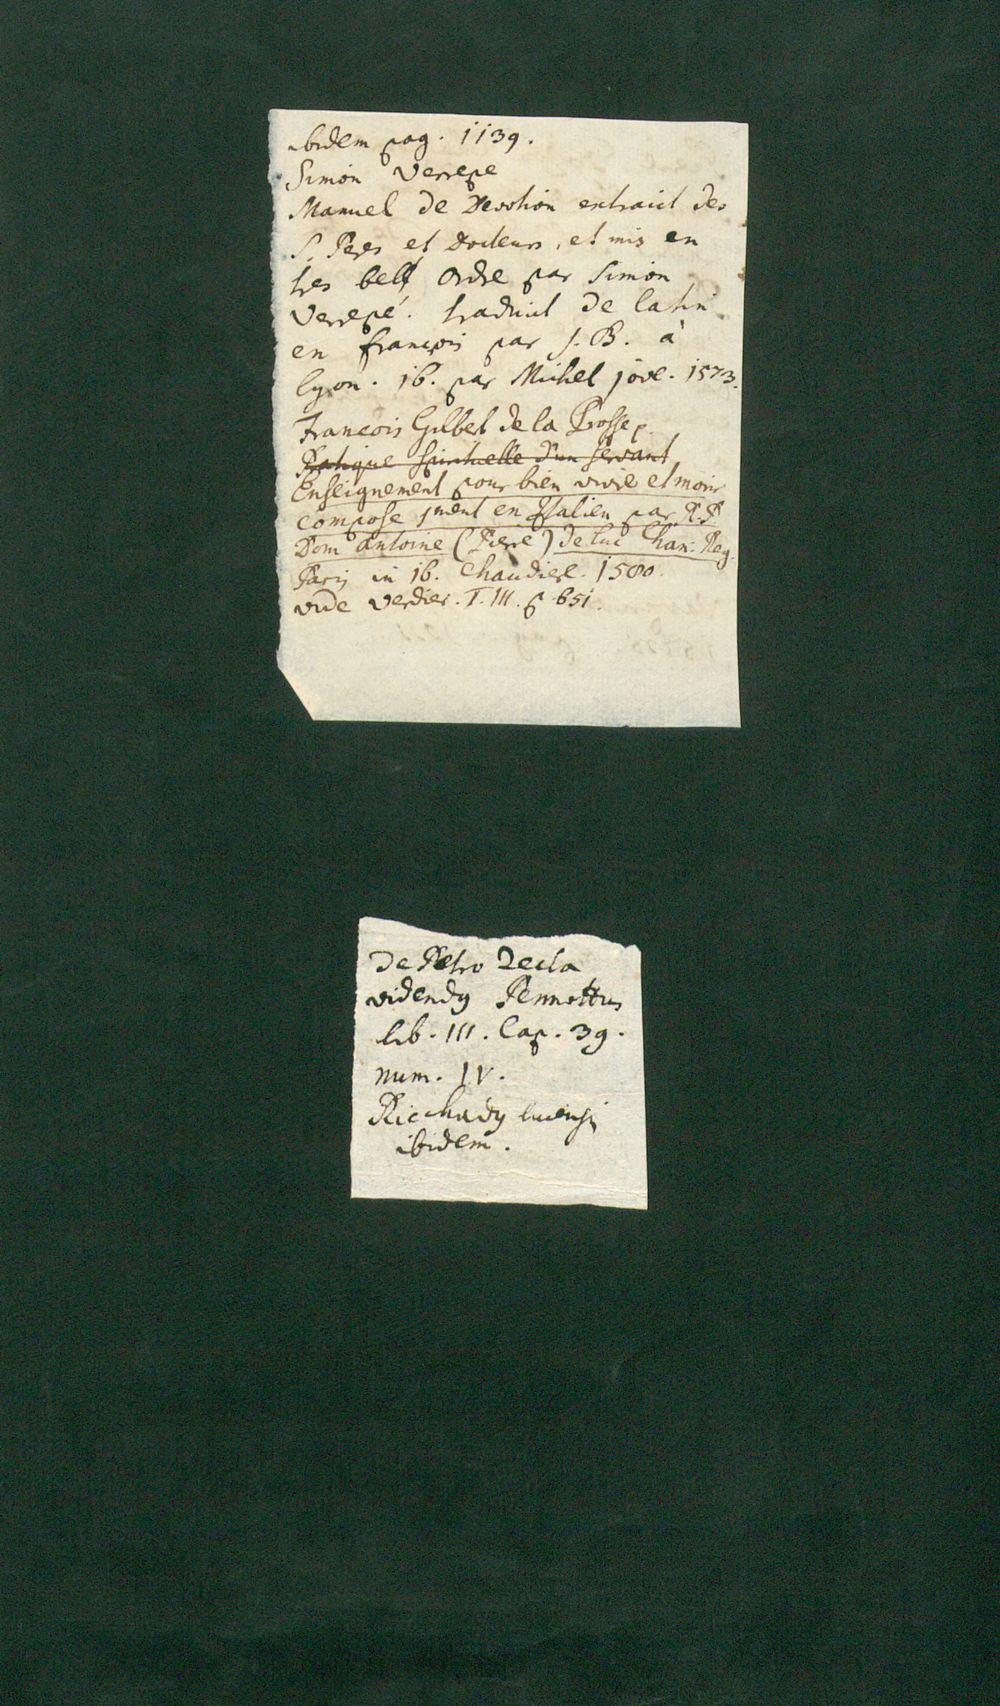 ibidem pag. 1139.
Simon Verrepe
Manuel de Devotion extraict des
S. Peres et Docteurs, et mis en
tres bell ordre par Simon
Verrepé. traduict de latin
en françois par J. B. à
lyon. 16. par Michel jove. 1573.
Francois Gilbet de la Brosse
Pratique spirituelle d'un servant
Enseignement pour bien vivre et mourir
compose en Italien par R. P.
Dom antoine (Piere) de luc Chan: Reg.
Paris in 16. Chaudiere. 1580.
vide verdier. T. III. p 651.
de Petro Recta
videndg Pennottus
lib. III. Cap. 39.
num. IV.
lucensi
ibidem.